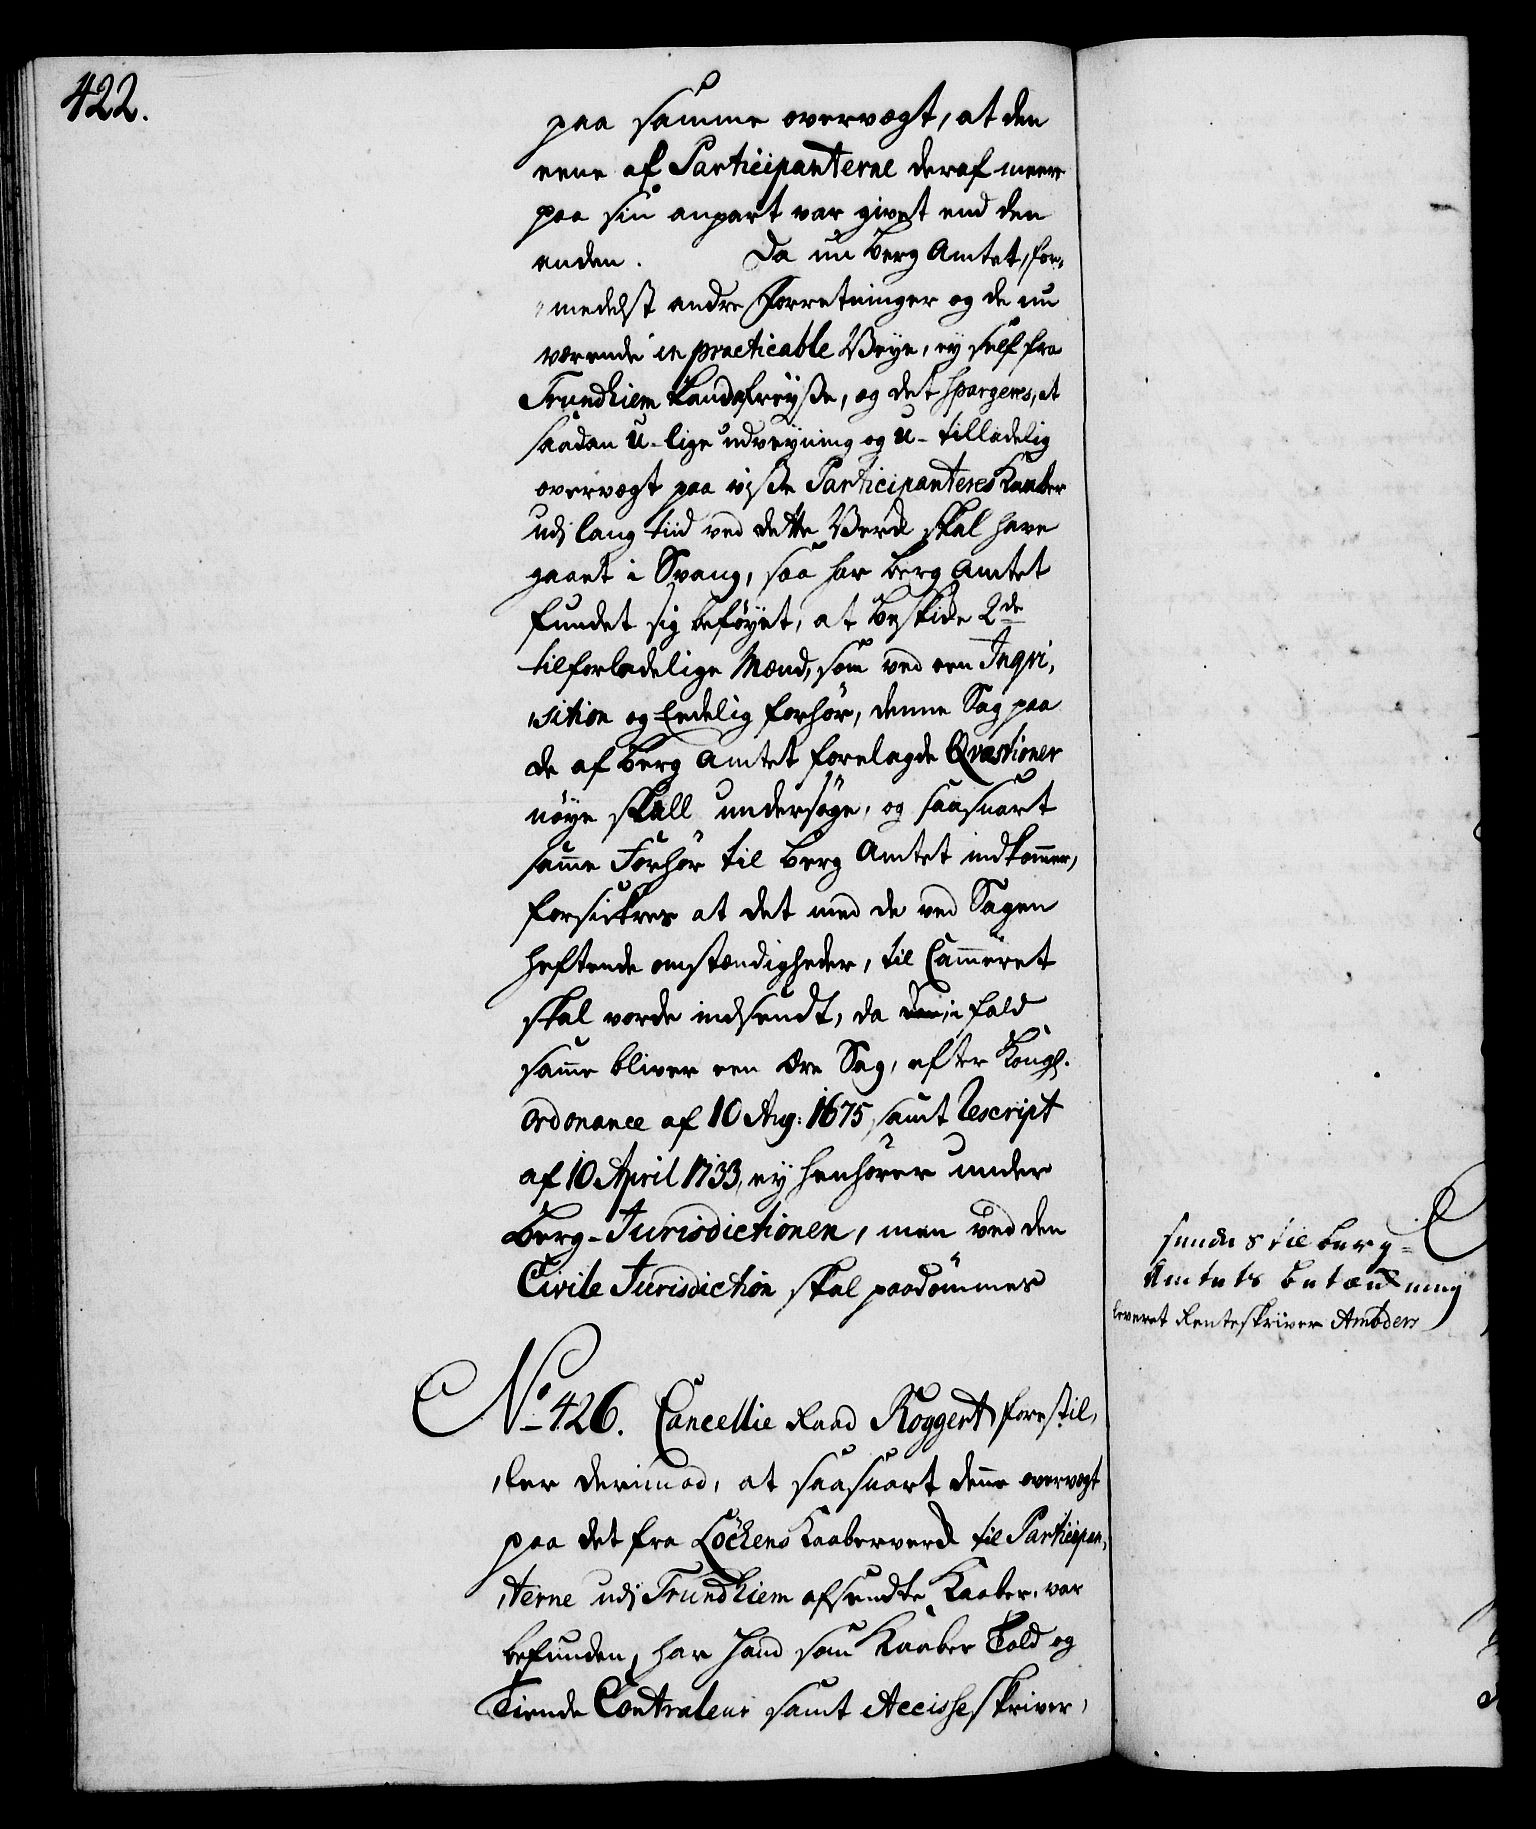 422.
paa samme overvægt, at den
eene af Participanterne deraf meere
paa sin anpart var givet end den
anden. Da nu Berg Amtet, for-
medelst andre Forretninger og de nu
værende inpracticable Veye, ey self fra
Trundhiem kand afreyse, og det spargeres, at
saadan U-lige udveyning og U-tilladelig
overvægt paa visse Participanteres Kaaber
udj lang tiid ved dette Verck skal have
gaaet i Svang, saa har Berg Amtet
fundet sig beføyet, at beskikke 2de
tilforladelige Mænd, som ved een Inqvi-
sition og Eedelig forhør, denne Sag paa
de af Berg Amtet forelagde Qvæstioner
nøye skall undersøge, og saasnart
samme Forhør til Berg Amtet indkommer,
forsickres at det med de ved Sagen
heftende omstændigheder, til Cammeret
skal vorde indsendt, da i fald
samme bliver een ære Sag, efter Kongl.
Ordonance af 10 Aug: 1675, samt Rescript
af 10 April 1733, ey henhører under
Berg-Jurisdictionen, men ved den
Civile Jurisdiction skal paadømmes
sendes til Berg-
Amtets betænkning
leveret Renteskriver Amböers
No 426. Cancellie Raad Roggert forestil-
ler derimod, at saasnart denne overvægt
paa det fra Löckens Kaaberverck til Participan-
terne udj Trundhiem afsendte Kaaber, var
befunden, har hand som Kaaber Told og
Tiende Contraleur samt Accisse skriver,